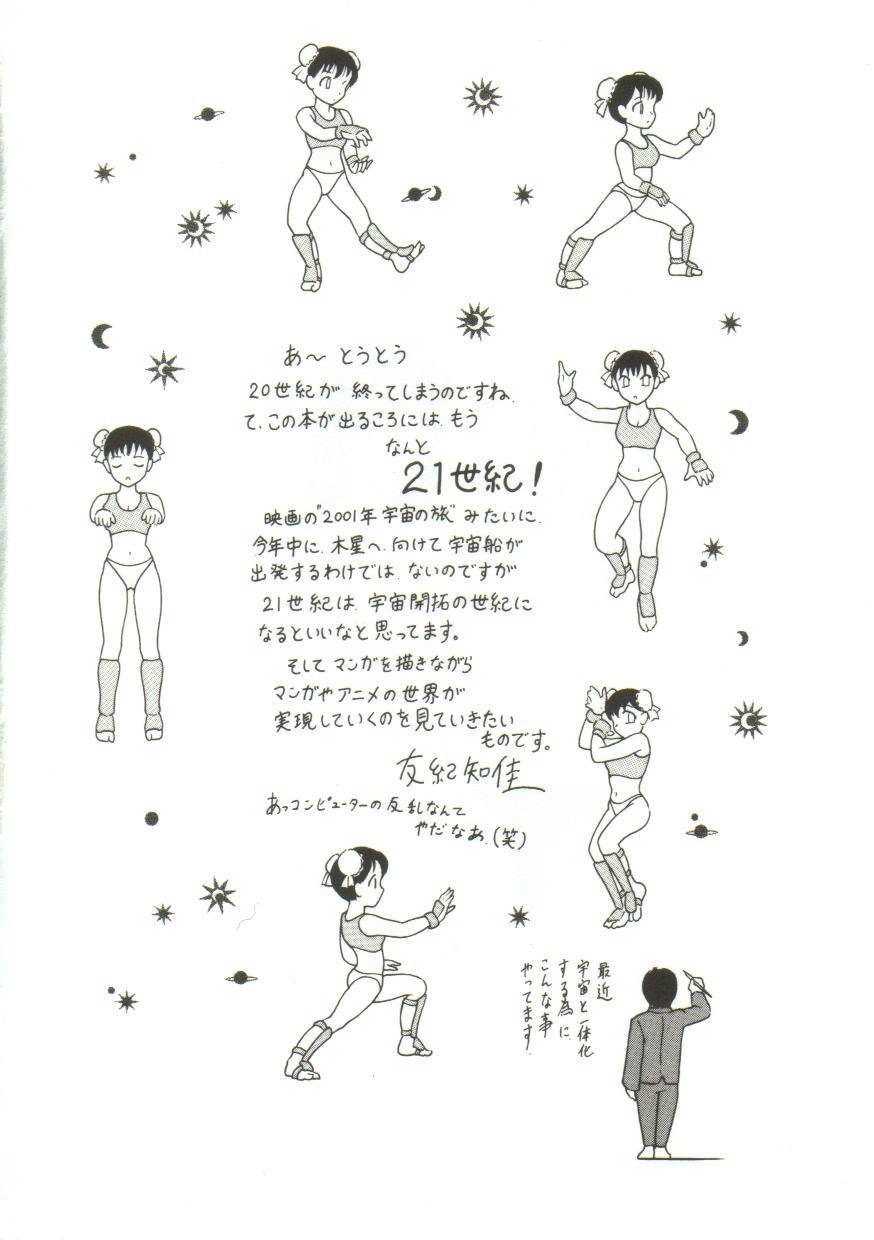 あ～とうとう
20世紀が終ってしまうのですね.
て、この本が出るころには.もう
なんと
21世紀!
映画の"2001年宇宙の旅"みたいに.
今年中に.木星へ.向けて宇宙船が
出発するわけでは.ないのですが
21世紀は.宇宙開拓の世紀に
なるといいなと思ってます。
そしてマンガを描きながら
マンガやアニメの世界が
実現していくのを見ていきたい
ものです。
友紀知佳
あっコンピューターの反乱なんて
やだなあ.(笑)
最近
宇宙と一体化
する為に.
こんな事
やってます.